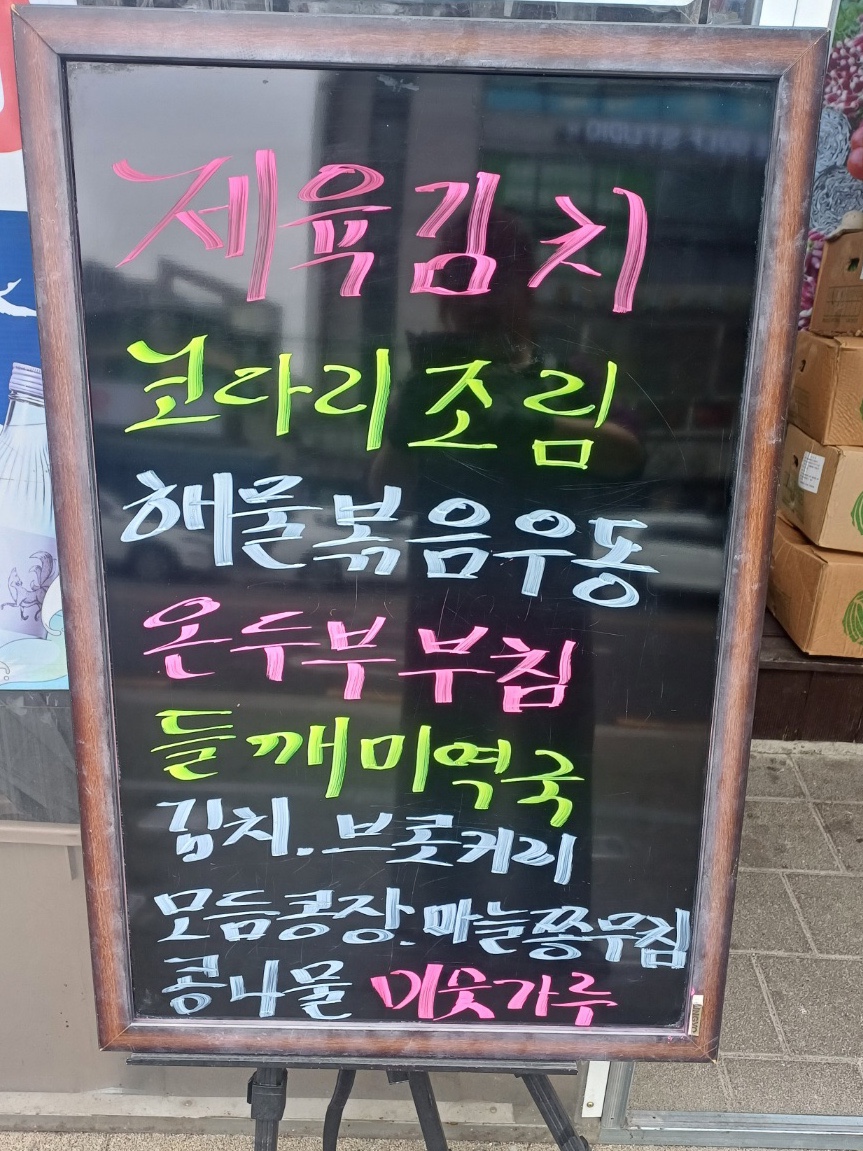 제육김치
코다리조림
해물볶음우동
온두부부침
들깨미역국
김치.브롯커리
모듬콩장.마늘쫑무침
콩나물 미숫가루